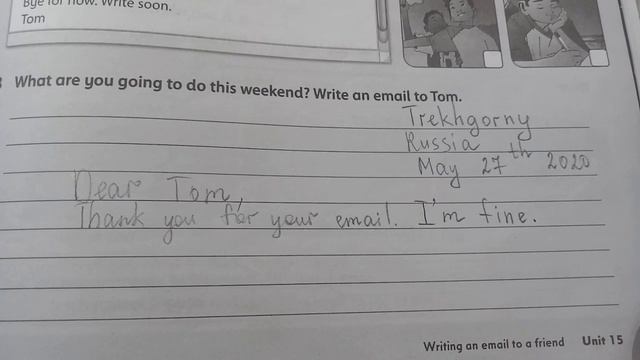 Bye for now. Write soon.
Tom
What are you going to do this weekend? Write an email to Tom.
Trekhgorny
Russia
May 27th 2020
Dear Tom,
Thank you for your email. I'm fine.
Writing an email to a friend Unit 15